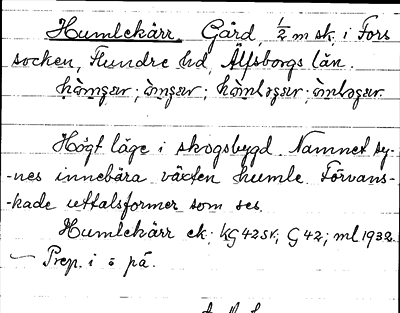 Humlekärr Gård, 1/2 m sk. i Fors
socken, Flundre hd, Älfsborgs län.
Högt läge i skogsbygd. Namnet sy-
-nes innebära växten humle. Förvans-
-kade uttalsformer som ses.
Humlekärr ek; kG42sk; G42; ml 1932.
Prep. i o på.